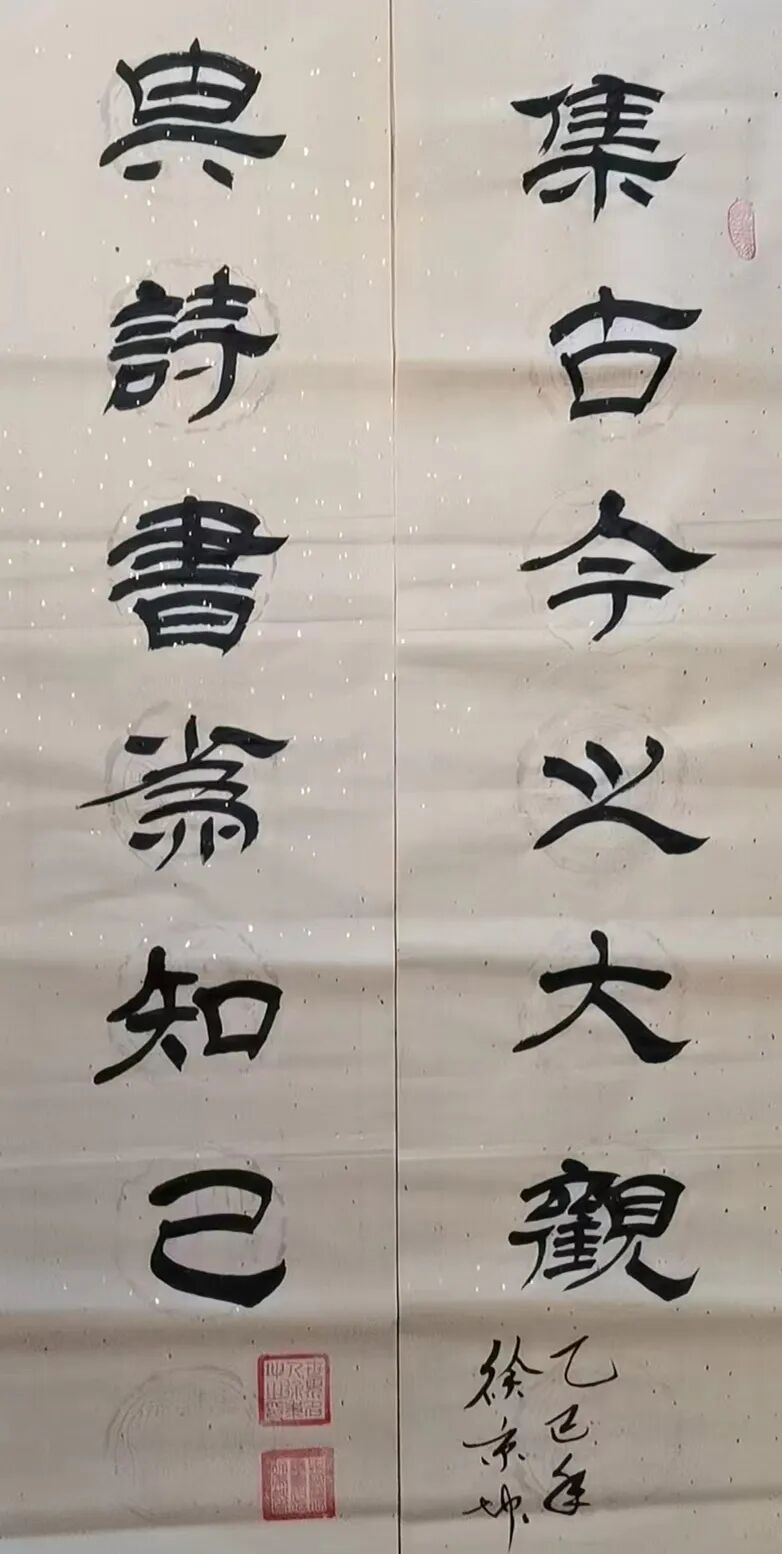 集古今之大觀
與詩書為知己
乙巳年
徐京坤